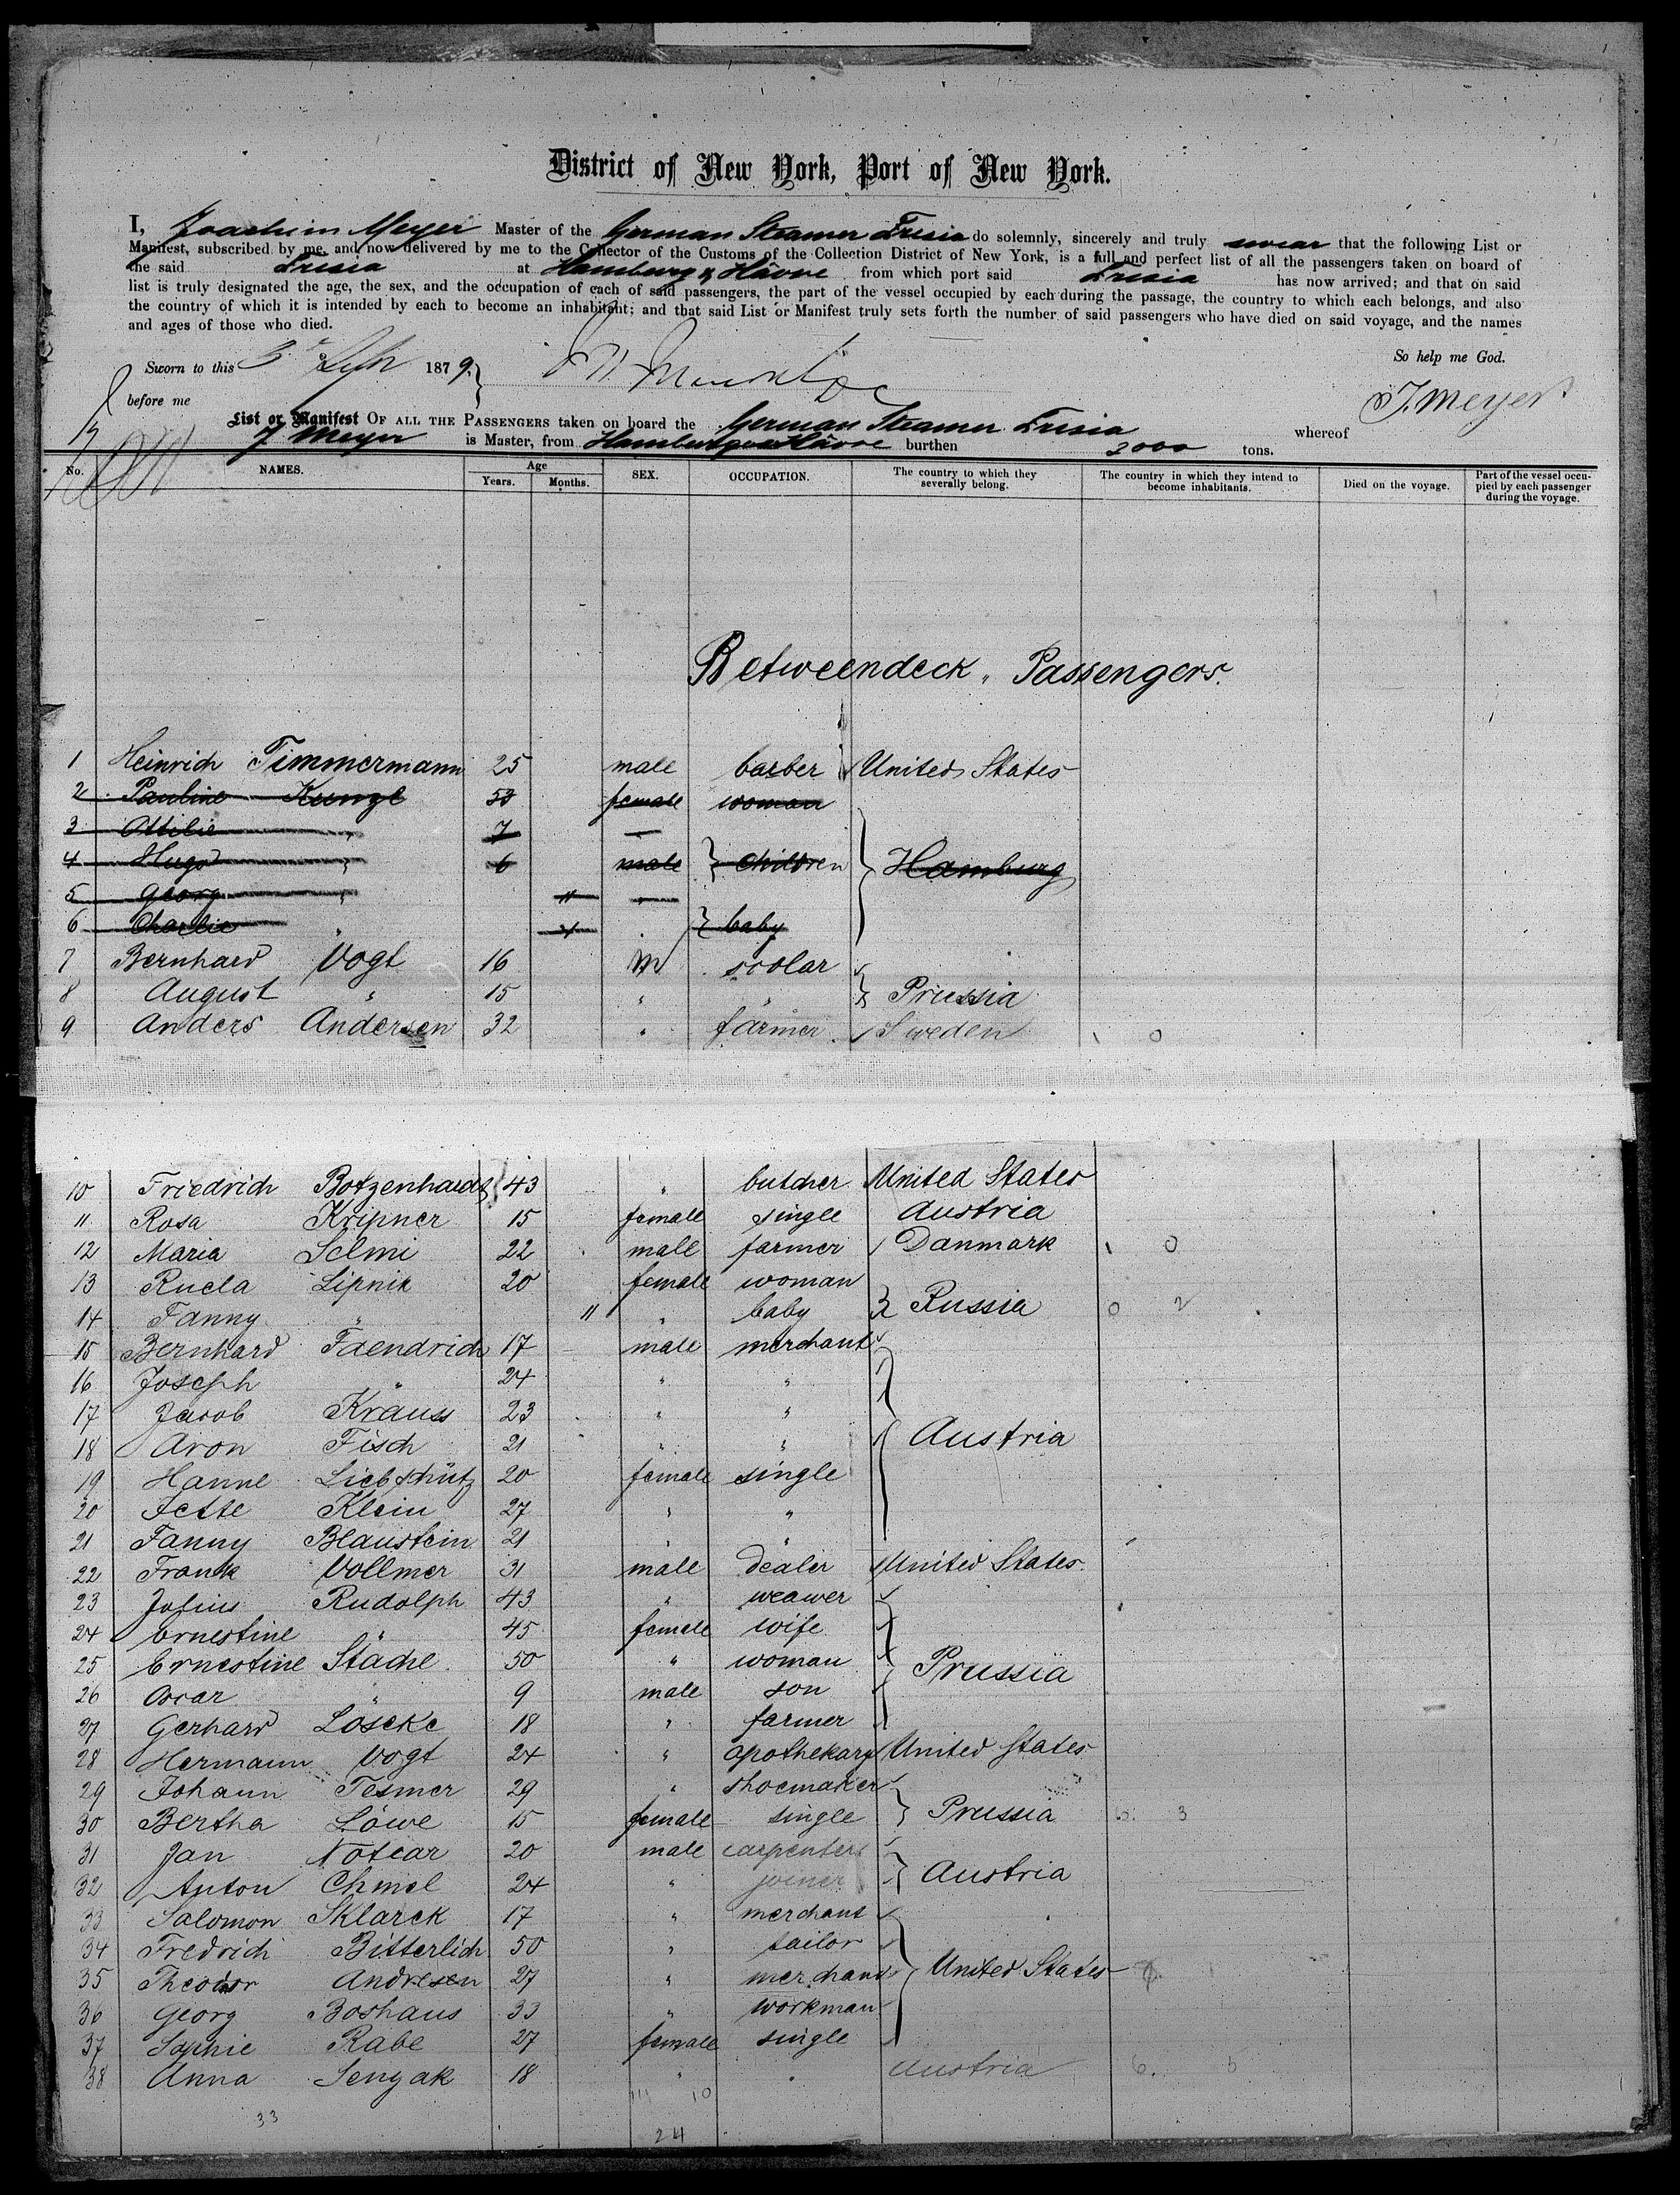 District of New York, Port of New York.
I, Joachim Meyer Master of the German Steamer Frisia do solemnly, sincerely and truly swear that the following List or
Manifest, subscribed by me, and now delivered by me to the Collector of the Customs of the Collection District of New York, is a full and perfect list of all the passengers taken on board of
the said Frisia at Hamburg & Hâvre from which port said Frisia has now arrived; and that on said
list is truly designated the age, the sex, and the occupation of each of said passengers, the part of the vessel occupied by each during the passage, the country to which each belongs, and also
the country of which it is intended by each to become an inhabitant; and that said List or Manifest truly sets forth the number of said passengers who have died on said voyage, and the names
and ages of those who died.
So help me God.
Sworn to this 3 1879.
before me
J. Meyer
List or Manifest OF ALL THE PASSENGERS taken on board the German Steamer Frisia whereof
J Meyer is Master, from Hamburg Hâvre burthen 3000 tons.
No. NAMES. Age Years. Months. SEX. OCCUPATION. The country to which they severally belong. The country in which they intend to become inhabitants. Died on the voyage. Part of the vessel occupied by each passenger during the voyage.
Betweendeck Passengers.
1 Heinrich Timmermann 25 male barber United States
2 Pauline Kunze 53 female woman
3 Ottilie " 7
4 Hugo " 6 male } children } Hamburg
5 Georg " 11
6 Charlie " } baby
7 Bernhard Vogt 16 m scolar
8 August " 15 " " } Prussia
9 Anders Andersen 32 " farmer Sweden 0
10 Friedrich Botzenhardt 43 " butcher United States
11 Rosa Kripner 15 female single Austria
12 Maria Selmi 22 male farmer Danmark 0
13 Rucla Lipnik 20 female woman
14 Fanny " 11 " baby } Russia 0 2
15 Bernhard Faendrich 17 male merchant
16 Joseph " 24 " "
17 Jacob Krauss 23 " "
18 Aron Fisch 21 " " Austria
19 Hanne Liebschütz 20 female single
20 Jette Klein 27 " "
21 Fanny Blaustein 21 " "
22 Frank Vollmer 31 male dealer United States
23 Julius Rudolph 43 " weawer
24 Ernestine " 45 female wife
25 Ernestine Stache 50 " woman Prussia
26 Oscar " 9 male son
27 Gerhard Löseke 18 " farmer
28 Hermann Vogt 24 " apothekary United States
29 Johann Tesmer 29 " shoemaker
30 Bertha Löwe 15 female single } Prussia 6. 3
31 Jan Notear 20 male carpenter
32 Anton Chmel 24 " joiner } Austria
33 Salomon Sklarek 17 " merchant
34 Fredrich Bitterlich 50 " tailor
35 Theodor Andresen 27 " merchant United States
36 Georg Boshaus 33 " workman
37 Sophie Rabe 27 female single
38 Anna Senyak 18 " " Austria 6. 5
10
33
24